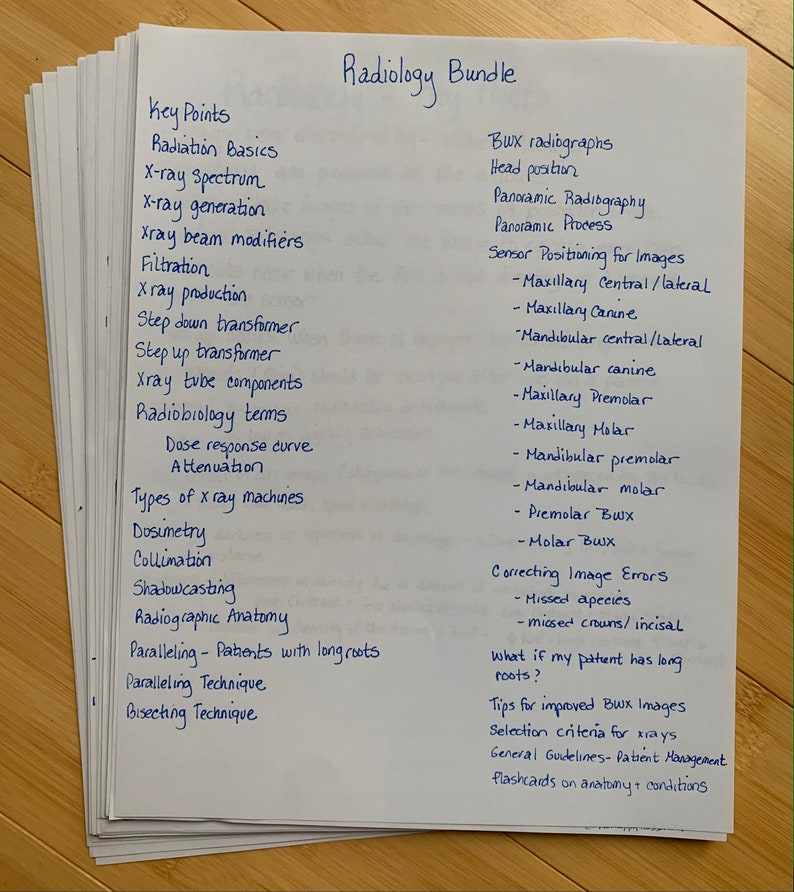 Radiology Bundle
Key Points
Radiation Basics
X-ray Spectrum
X-ray generation
Xray beam modifiers
Filtration
Xray production
Step down transformer
Step up transformer
Xray tube components
Radiobiology terms
Dose response curve
Attenuation
Types of x ray machines
Dosimetry
Collimation
Shadowcasting
Radiographic Anatomy
Paralleling - Patients with long roots
Paralleling Technique
Bisecting Technique
BWX radiographs
Head position
Panoramic Radiography
Panoramic Process
Sensor Positioning for Images
- Maxillary Central/lateral
- Maxillary Canine
- Mandibular central/Lateral
- Mandibular canine
- Maxillary Premolar
- Maxillary Molar
- Mandibular premolar
- Mandibular molar
- Premolar BWX
- Molar BWX
Correcting Image Errors
- Missed apecies
- missed crowns/incisal
What if my patient has long
roots?
Tips for improved BWX Images
Selection criteria for xrays
General Guidelines- Patient Management
flashcards on anatomy + conditions